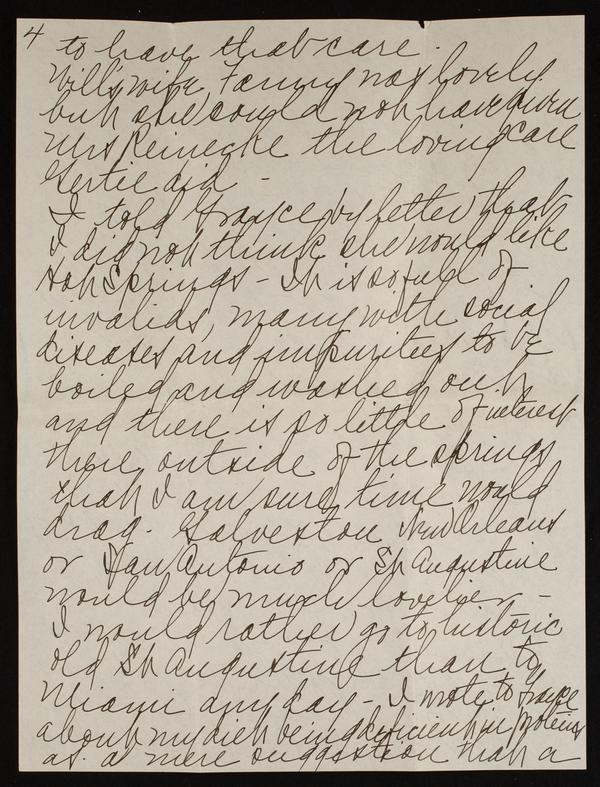 4
to have that care.
Will's wife, Fanny was lovely
but she could not have given
Mrs Reinecke the loving care
Gertie did -
I told Grayce by letter that
I did not think she would like
Hot Springs - It is so full of
invalids, many with social
diseases and impurities to be
boiled and washed out,
and there is so little of interest
there outside of the springs
that I am sure time would
drag. Galveston New Orleans
or San Antonio or St Augustine
would be much lovelier -
I would rather go to historic
old St Augustine than to
Miami any day - I wrote to Grayce
about my diet being deficient in proteins
as a mere suggestion that a